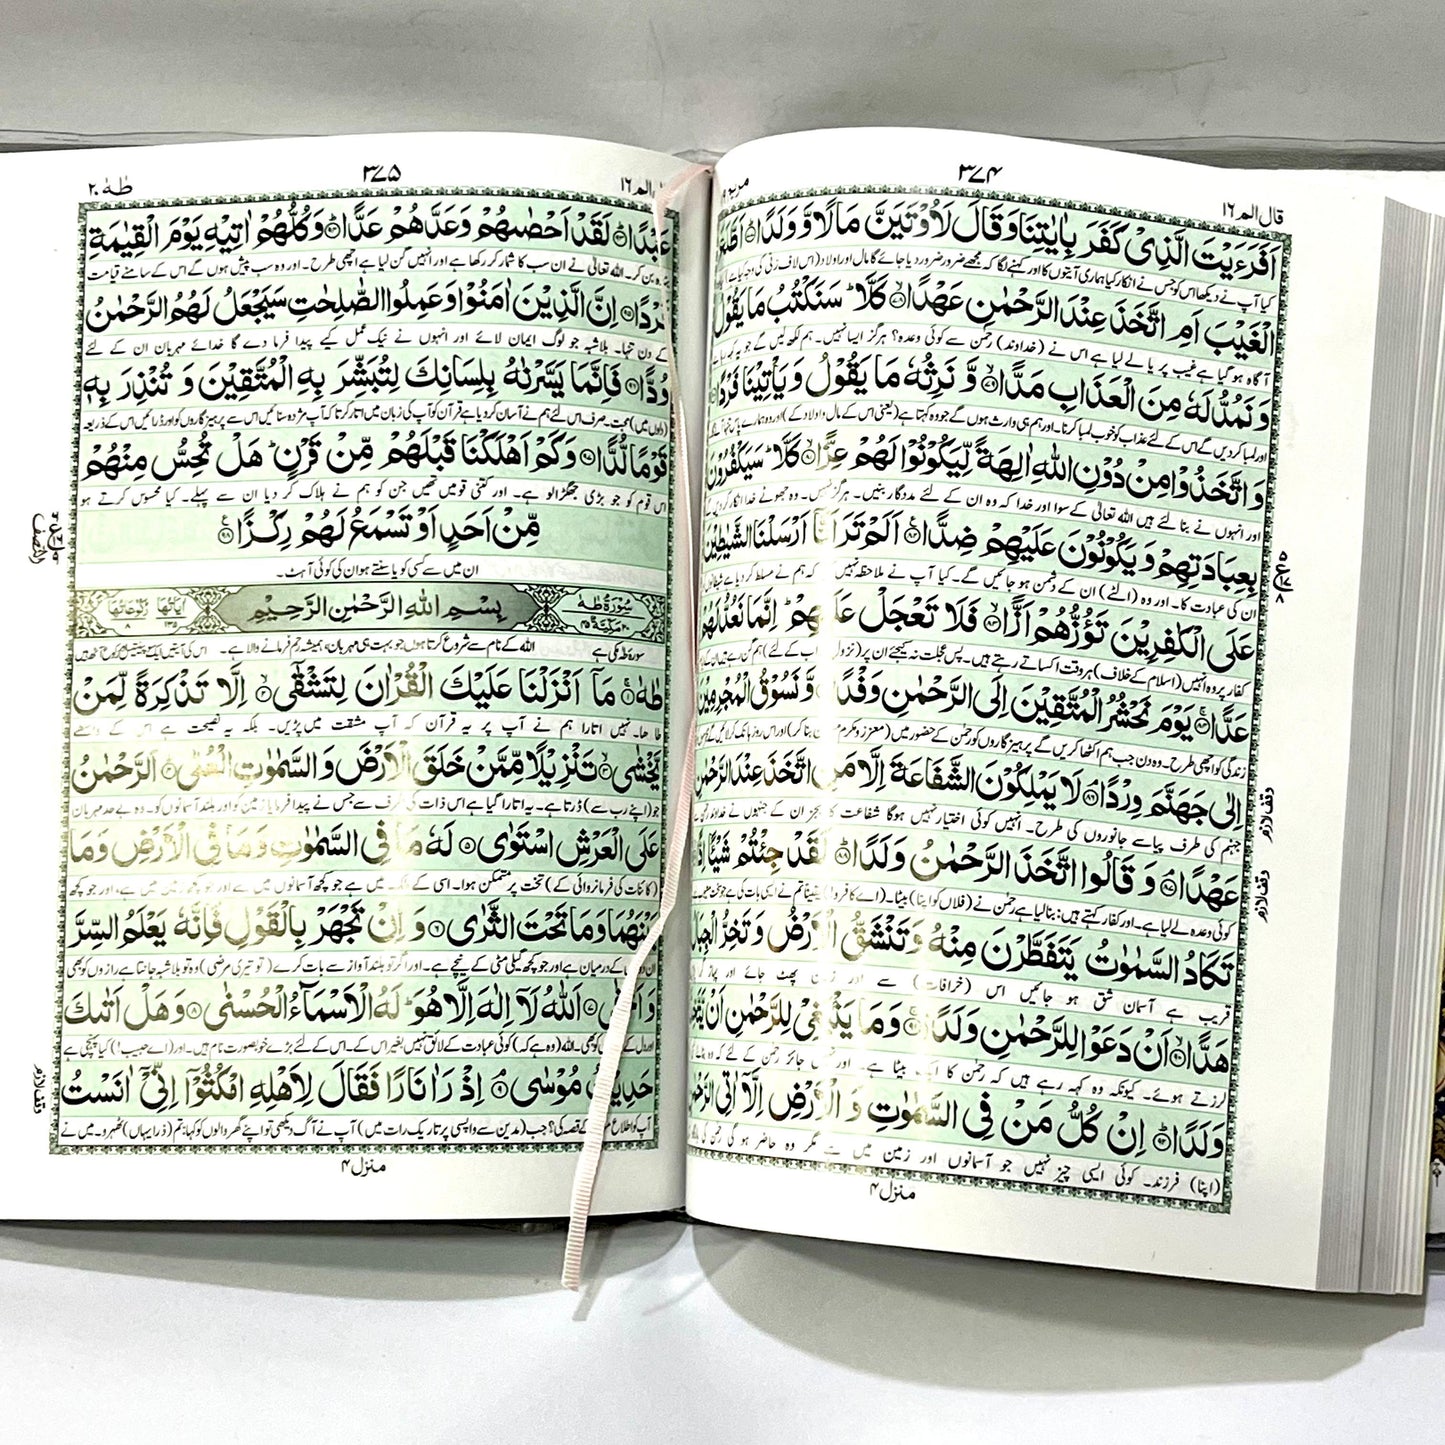 قال الم ١٦
٣٧٤
مريم ١٩
اَفَرَءَيْتَ الَّذِىْ كَفَرَ بِاٰيٰتِنَا وَقَالَ لَاُوْتَيَنَّ مَالًا وَّوَلَدًا
کیا آپ نے دیکھا اس کو جس نے انکار کیا ہماری آیتوں کا اور کہنے لگا کہ مجھے ضرور ضرور دیا جائے گا مال اور اولاد
الْغَيْبَ اَمِ اتَّخَذَ عِنْدَ الرَّحْمٰنِ عَهْدًا ۙ كَلَّا ؕ سَنَكْتُبُ مَا يَقُوْلُ
آگاہ ہو گیا ہے غیب پر یا لے لیا ہے اس نے (خداوند) رحمٰن سے کوئی وعدہ؟ ہرگز ایسا نہیں۔ ہم لکھ لیں گے جو یہ کہہ رہا ہے
وَنَمُدُّ لَهٗ مِنَ الْعَذَابِ مَدًّا ۙ وَّنَرِثُهٗ مَا يَقُوْلُ وَيَاْتِيْنَا فَرْدًا
اور لمبا کر دیں گے اس کے لئے عذاب کو خوب لمبا کرنا۔ اور ہم ہی وارث ہوں گے جو وہ کہتا ہے (یعنی اس کے مال و اولاد کے) اور وہ ہمارے پاس
وَاتَّخَذُوْا مِنْ دُوْنِ اللّٰهِ اٰلِهَةً لِّيَكُوْنُوْا لَهُمْ عِزًّا ۙ كَلَّا ؕ سَيَكْفُرُوْنَ
اور انہوں نے بنا لئے ہیں اللہ تعالیٰ کے سوا اور خدا کہ وہ ان کے لئے مددگار بنیں۔ ہرگز نہیں۔ وہ جھوٹے خدا انکار کر دیں گے
بِعِبَادَتِهِمْ وَيَكُوْنُوْنَ عَلَيْهِمْ ضِدًّا اَلَمْ تَرَ اَنَّا اَرْسَلْنَا الشَّيٰطِيْنَ
ان کی عبادت کا۔ اور وہ (الٹے) ان کے دشمن ہو جائیں گے۔ کیا آپ نے ملاحظہ نہیں کیا کہ ہم نے مسلط کر دیا ہے
عَلَى الْكٰفِرِيْنَ تَؤُزُّهُمْ اَزًّا ۙ فَلَا تَعْجَلْ عَلَيْهِمْ ؕ اِنَّمَا نَعُدُّ لَهُمْ
کفار پر وہ انہیں (اسلام کے خلاف) ہر وقت اکساتے رہتے ہیں۔ پس عجلت نہ کیجئے ان پر
عَدًّا ۚ يَوْمَ نَحْشُرُ الْمُتَّقِيْنَ اِلَى الرَّحْمٰنِ وَفْدًا ۙ وَّنَسُوْقُ الْمُجْرِمِيْنَ
وہ دن جب ہم اکٹھا کریں گے پرہیزگاروں کو رحمٰن کے حضور میں
اِلٰى جَهَنَّمَ وِرْدًا ۘ لَا يَمْلِكُوْنَ الشَّفَاعَةَ اِلَّا مَنِ اتَّخَذَ عِنْدَ الرَّحْمٰنِ
جہنم کی طرف پیاسے جانوروں کی طرح۔ انہیں کوئی اختیار نہیں ہوگا شفاعت کا بجز ان کے جنہوں نے
عَهْدًا ۘ وَقَالُوا اتَّخَذَ الرَّحْمٰنُ وَلَدًا ؕ لَقَدْ جِئْتُمْ شَيْـًٔا اِدًّا
کوئی وعدہ لے لیا ہے۔ اور کفار کہتے ہیں: بنا لیا ہے رحمٰن نے (فلاں کو اپنا) بیٹا۔
تَكَادُ السَّمٰوٰتُ يَتَفَطَّرْنَ مِنْهُ وَتَنْشَقُّ الْاَرْضُ وَتَخِرُّ الْجِبَالُ
قریب ہے آسمان شق ہو جائیں اس (خرافات) سے اور زمین پھٹ جائے اور پہاڑ
هَدًّا ۙ اَنْ دَعَوْا لِلرَّحْمٰنِ وَلَدًا ۚ وَمَا يَنْۢبَغِىْ لِلرَّحْمٰنِ اَنْ يَّتَّخِذَ
لرزتے ہوئے۔ کیونکہ وہ کہہ رہے ہیں کہ رحمٰن کا ایک بیٹا ہے۔ اور نہیں جائز رحمٰن کے لئے کہ وہ
وَلَدًا ؕ اِنْ كُلُّ مَنْ فِى السَّمٰوٰتِ وَالْاَرْضِ اِلَّاۤ اٰتِى الرَّحْمٰنِ
(اپنا) فرزند۔ کوئی ایسی چیز نہیں جو آسمانوں اور زمین میں ہے مگر وہ حاضر ہو گی رحمٰن کی
وقف لازم
وقف لازم
منزل ٤
الم ١٦
٣٧٥
طٰهٰ ٢٠
عَبْدًا ؕ لَقَدْ اَحْصٰىهُمْ وَعَدَّهُمْ عَدًّا ؕ وَكُلُّهُمْ اٰتِيْهِ يَوْمَ الْقِيٰمَةِ
بندہ بن کر۔ اللہ تعالیٰ نے ان سب کا شمار کر رکھا ہے اور انہیں گن لیا ہے اچھی طرح۔ اور وہ سب پیش ہوں گے اس کے سامنے قیامت
فَرْدًا اِنَّ الَّذِيْنَ اٰمَنُوْا وَعَمِلُوا الصّٰلِحٰتِ سَيَجْعَلُ لَهُمُ الرَّحْمٰنُ
کے دن تنہا۔ بلاشبہ جو لوگ ایمان لائے اور انہوں نے نیک عمل کیے پیدا فرما دے گا خدائے مہربان ان کے لئے
وُدًّا فَاِنَّمَا يَسَّرْنٰهُ بِلِسَانِكَ لِتُبَشِّرَ بِهِ الْمُتَّقِيْنَ وَتُنْذِرَ بِهٖ
(دلوں میں) محبت۔ صرف اس لئے ہم نے آسان کر دیا ہے قرآن کو آپ کی زبان میں اتار کر تا کہ آپ مژدہ سنائیں اس سے پرہیزگاروں کو اور ڈرائیں اس کے ذریعہ
قَوْمًا لُّدًّا وَكَمْ اَهْلَكْنَا قَبْلَهُمْ مِّنْ قَرْنٍ ؕ هَلْ تُحِسُّ مِنْهُمْ
اس قوم کو جو بڑی جھگڑالو ہے۔ اور کتنی قومیں تھیں جن کو ہم نے ہلاک کر دیا ان سے پہلے۔ کیا محسوس کرتے ہو
مِّنْ اَحَدٍ اَوْ تَسْمَعُ لَهُمْ رِكْزًا
ان میں سے کسی کو یا سنتے ہو ان کی کوئی آہٹ۔
سُوْرَةُ طٰهٰ
بِسْمِ اللّٰهِ الرَّحْمٰنِ الرَّحِيْمِ
اٰيَاتُهَا ١٣٥ رُكُوْعَاتُهَا ٨
سورۃ طہ مکی ہے
اللہ کے نام سے شروع کرتا ہوں جو بہت ہی مہربان، ہمیشہ رحم فرمانے والا ہے۔
طٰهٰ ۚ مَاۤ اَنْزَلْنَا عَلَيْكَ الْقُرْاٰنَ لِتَشْقٰٓى ۙ اِلَّا تَذْكِرَةً لِّمَنْ
طا ھا۔ نہیں اتارا ہم نے آپ پر یہ قرآن کہ آپ مشقت میں پڑیں۔ بلکہ یہ نصیحت ہے اس کے واسطے
يَّخْشٰى ۙ تَنْزِيْلًا مِّمَّنْ خَلَقَ الْاَرْضَ وَالسَّمٰوٰتِ الْعُلٰى ؕ اَلرَّحْمٰنُ
جو (اپنے رب سے) ڈرتا ہے۔ یہ اتارا گیا ہے اس ذات کی طرف سے جس نے پیدا فرمایا زمین کو اور بلند آسمانوں کو۔ وہ بے حد مہربان
عَلَى الْعَرْشِ اسْتَوٰى لَهٗ مَا فِى السَّمٰوٰتِ وَمَا فِى الْاَرْضِ وَمَا
(کائنات کی فرمانروائی کے) تخت پر متمکن ہوا۔ اسی کے ملک میں ہے جو کچھ آسمانوں میں ہے اور جو کچھ زمین میں ہے، اور جو کچھ
بَيْنَهُمَا وَمَا تَحْتَ الثَّرٰى وَاِنْ تَجْهَرْ بِالْقَوْلِ فَاِنَّهٗ يَعْلَمُ السِّرَّ
ان دونوں کے درمیان ہے اور جو کچھ گیلی مٹی کے نیچے ہے۔ اور اگر تو بلند آواز سے بات کرے (تو تیری مرضی) وہ تو بلاشبہ جانتا ہے رازوں کو بھی
وَاَخْفٰى اَللّٰهُ لَاۤ اِلٰهَ اِلَّا هُوَ ؕ لَهُ الْاَسْمَآءُ الْحُسْنٰى وَهَلْ اَتٰىكَ
اللہ (وہ ہے کہ) کوئی عبادت کے لائق نہیں بغیر اس کے۔ اس کے لئے بڑے خوبصورت نام ہیں۔ اور (اے حبیب!) کیا پہنچی ہے
حَدِيْثُ مُوْسٰى ۘ اِذْ رَاٰ نَارًا فَقَالَ لِاَهْلِهِ امْكُثُوْۤا اِنِّىْۤ اٰنَسْتُ
آپ کو اطلاع موسیٰ کے قصہ کی؟ جب (مدین سے واپسی پر تاریک رات میں) آپ نے آگ دیکھی تو اپنے گھر والوں کو کہا: تم (ذرا یہاں) ٹھہرو۔ میں نے
وقف لازم
منزل ٤